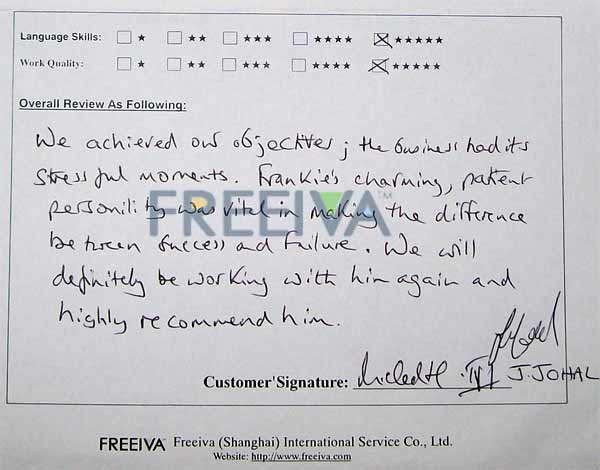 Language Skills: ★ ★★ ★★★ ★★★★ ★★★★★
Work Quality: ★ ★★ ★★★ ★★★★ ★★★★★
Overall Review As Following:
We achieved our objectives; the business had its
stressful moments. Frankie's charming, patient
FREEIVA™
personility was vital in making the difference
between success and failure. We will
definitely be working with him again and
highly recommend him.
Customer'Signature: J. JOHAL
FREEIVA Freeiva (Shanghai) International Service Co., Ltd.
Website: http://www.freeiva.com